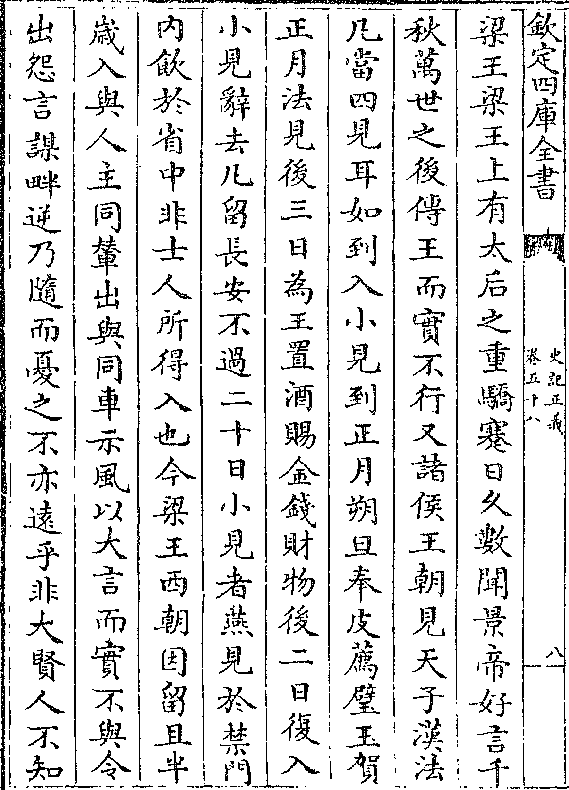 欽定四庫全書
史記正義
卷五十八
八
梁王梁王上有太后之重驕蹇日久數聞景帝好言千
秋萬世之後傳王而實不行又諸侯王朝見天子漢法
凡當四見耳如到入小見到正月朔旦奉皮薦璧玉賀
正月法見後三日為王置酒賜金錢財物後二日復入
小見辭去凡留長安不過二十日小見者燕見於禁門
內飲於省中非士人所得入也今梁王西朝因留且半
歲入與人主同輦出與同車示風以大言而實不與令
出怨言謀畔逆乃隨而憂之不亦遠乎非大賢人不知